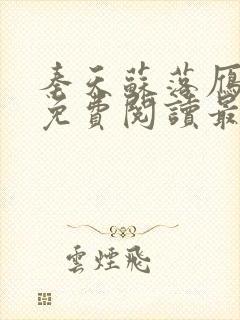 秦天蘇落雁
免費閱讀最
雲煙飛